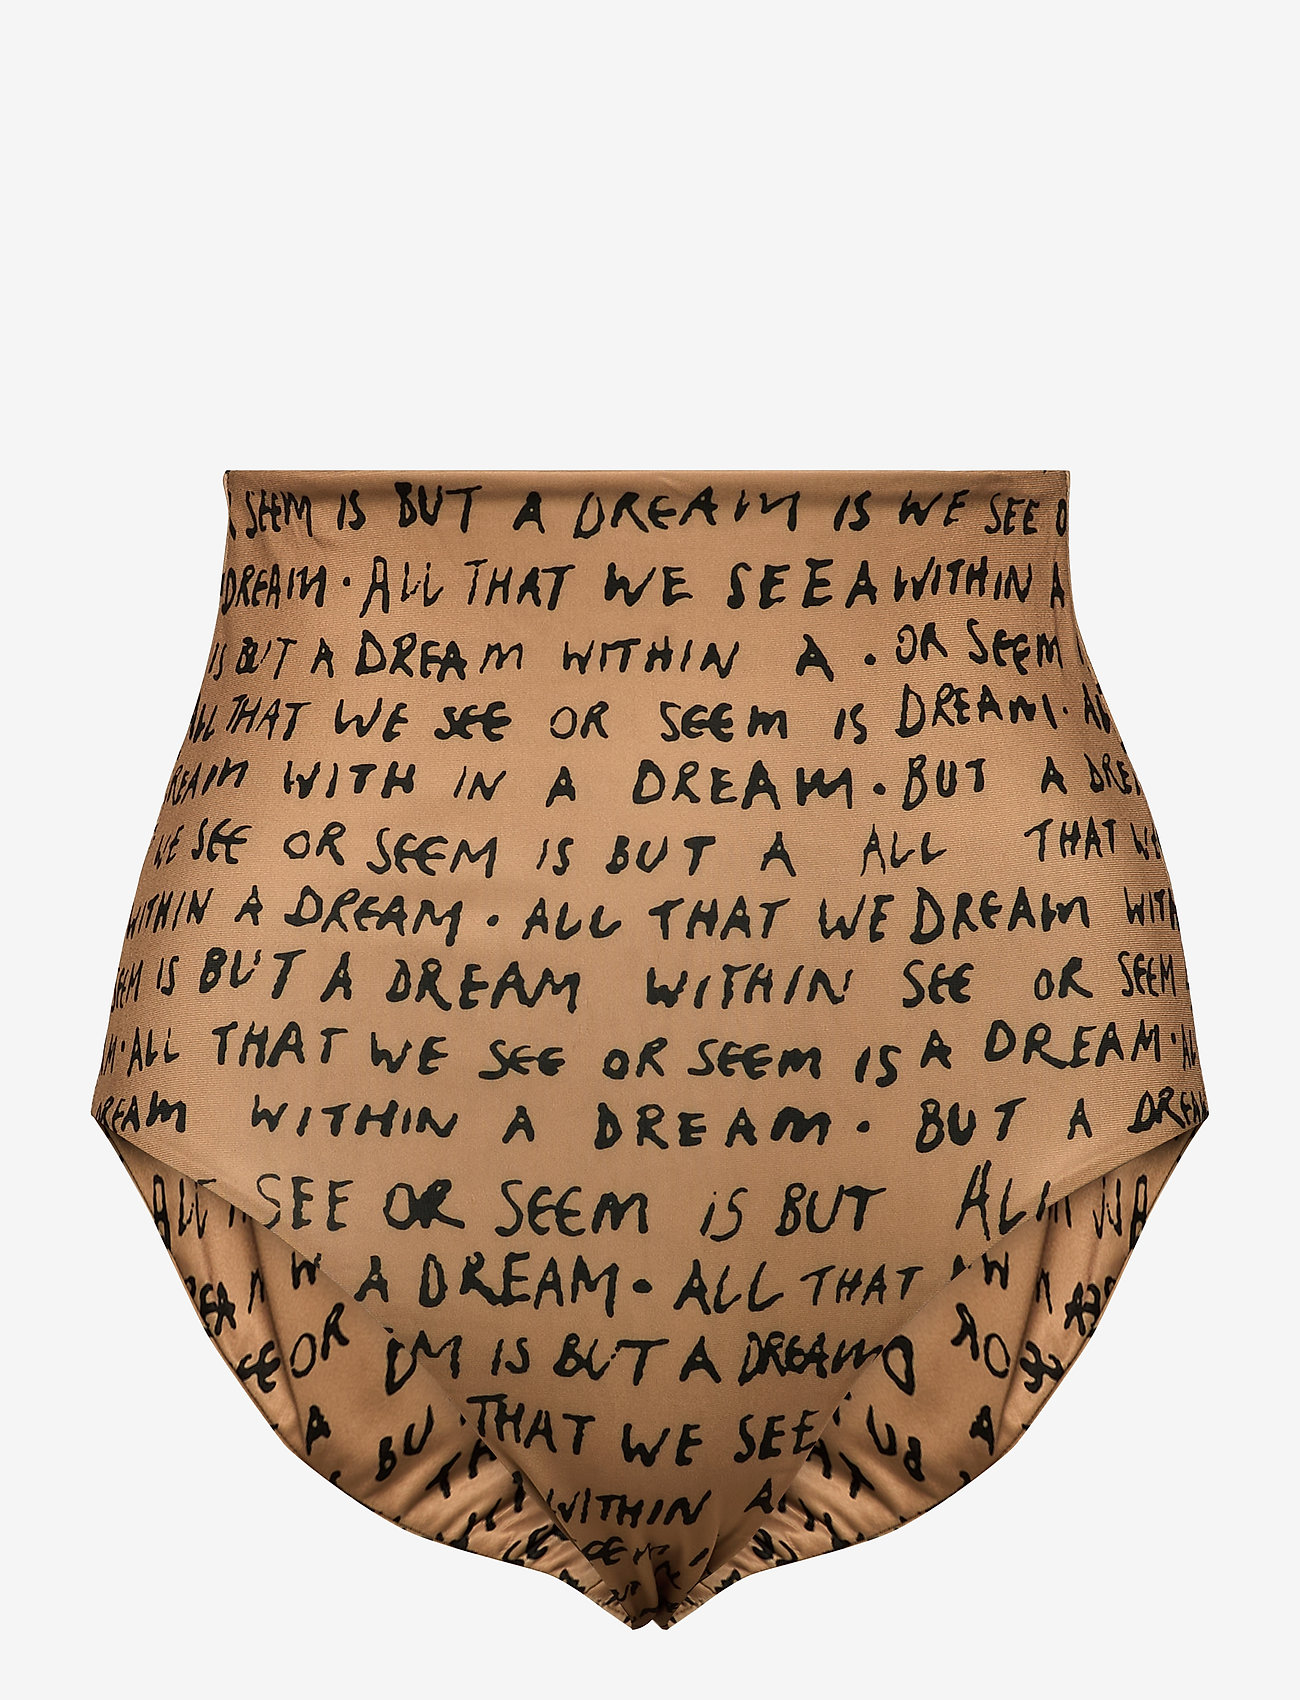 OR SEEM IS BUT A DREAM IS WE SEE
DREAM · ALL THAT WE SEE A WITHIN A
IS BUT A DREAM WITHIN A · OR SEEM
ALL THAT WE SEE OR SEEM IS DREAM · ALL
DREAM WITH IN A DREAM · BUT A DREA
WE SEE OR SEEM IS BUT A ALL THAT WE
WITHIN A DREAM · ALL THAT WE DREAM WITH
SEEM IS BUT A DREAM WITHIN SEE OR SEEM
M · ALL THAT WE SEE OR SEEM IS A DREAM · AL
DREAM WITHIN A DREAM · BUT A DREAM
ALL SEE OR SEEM IS BUT ALL
W A DREAM · ALL THAT
OR EM IS BUT A DREAM
A BU THAT WE SEE
WITHIN A